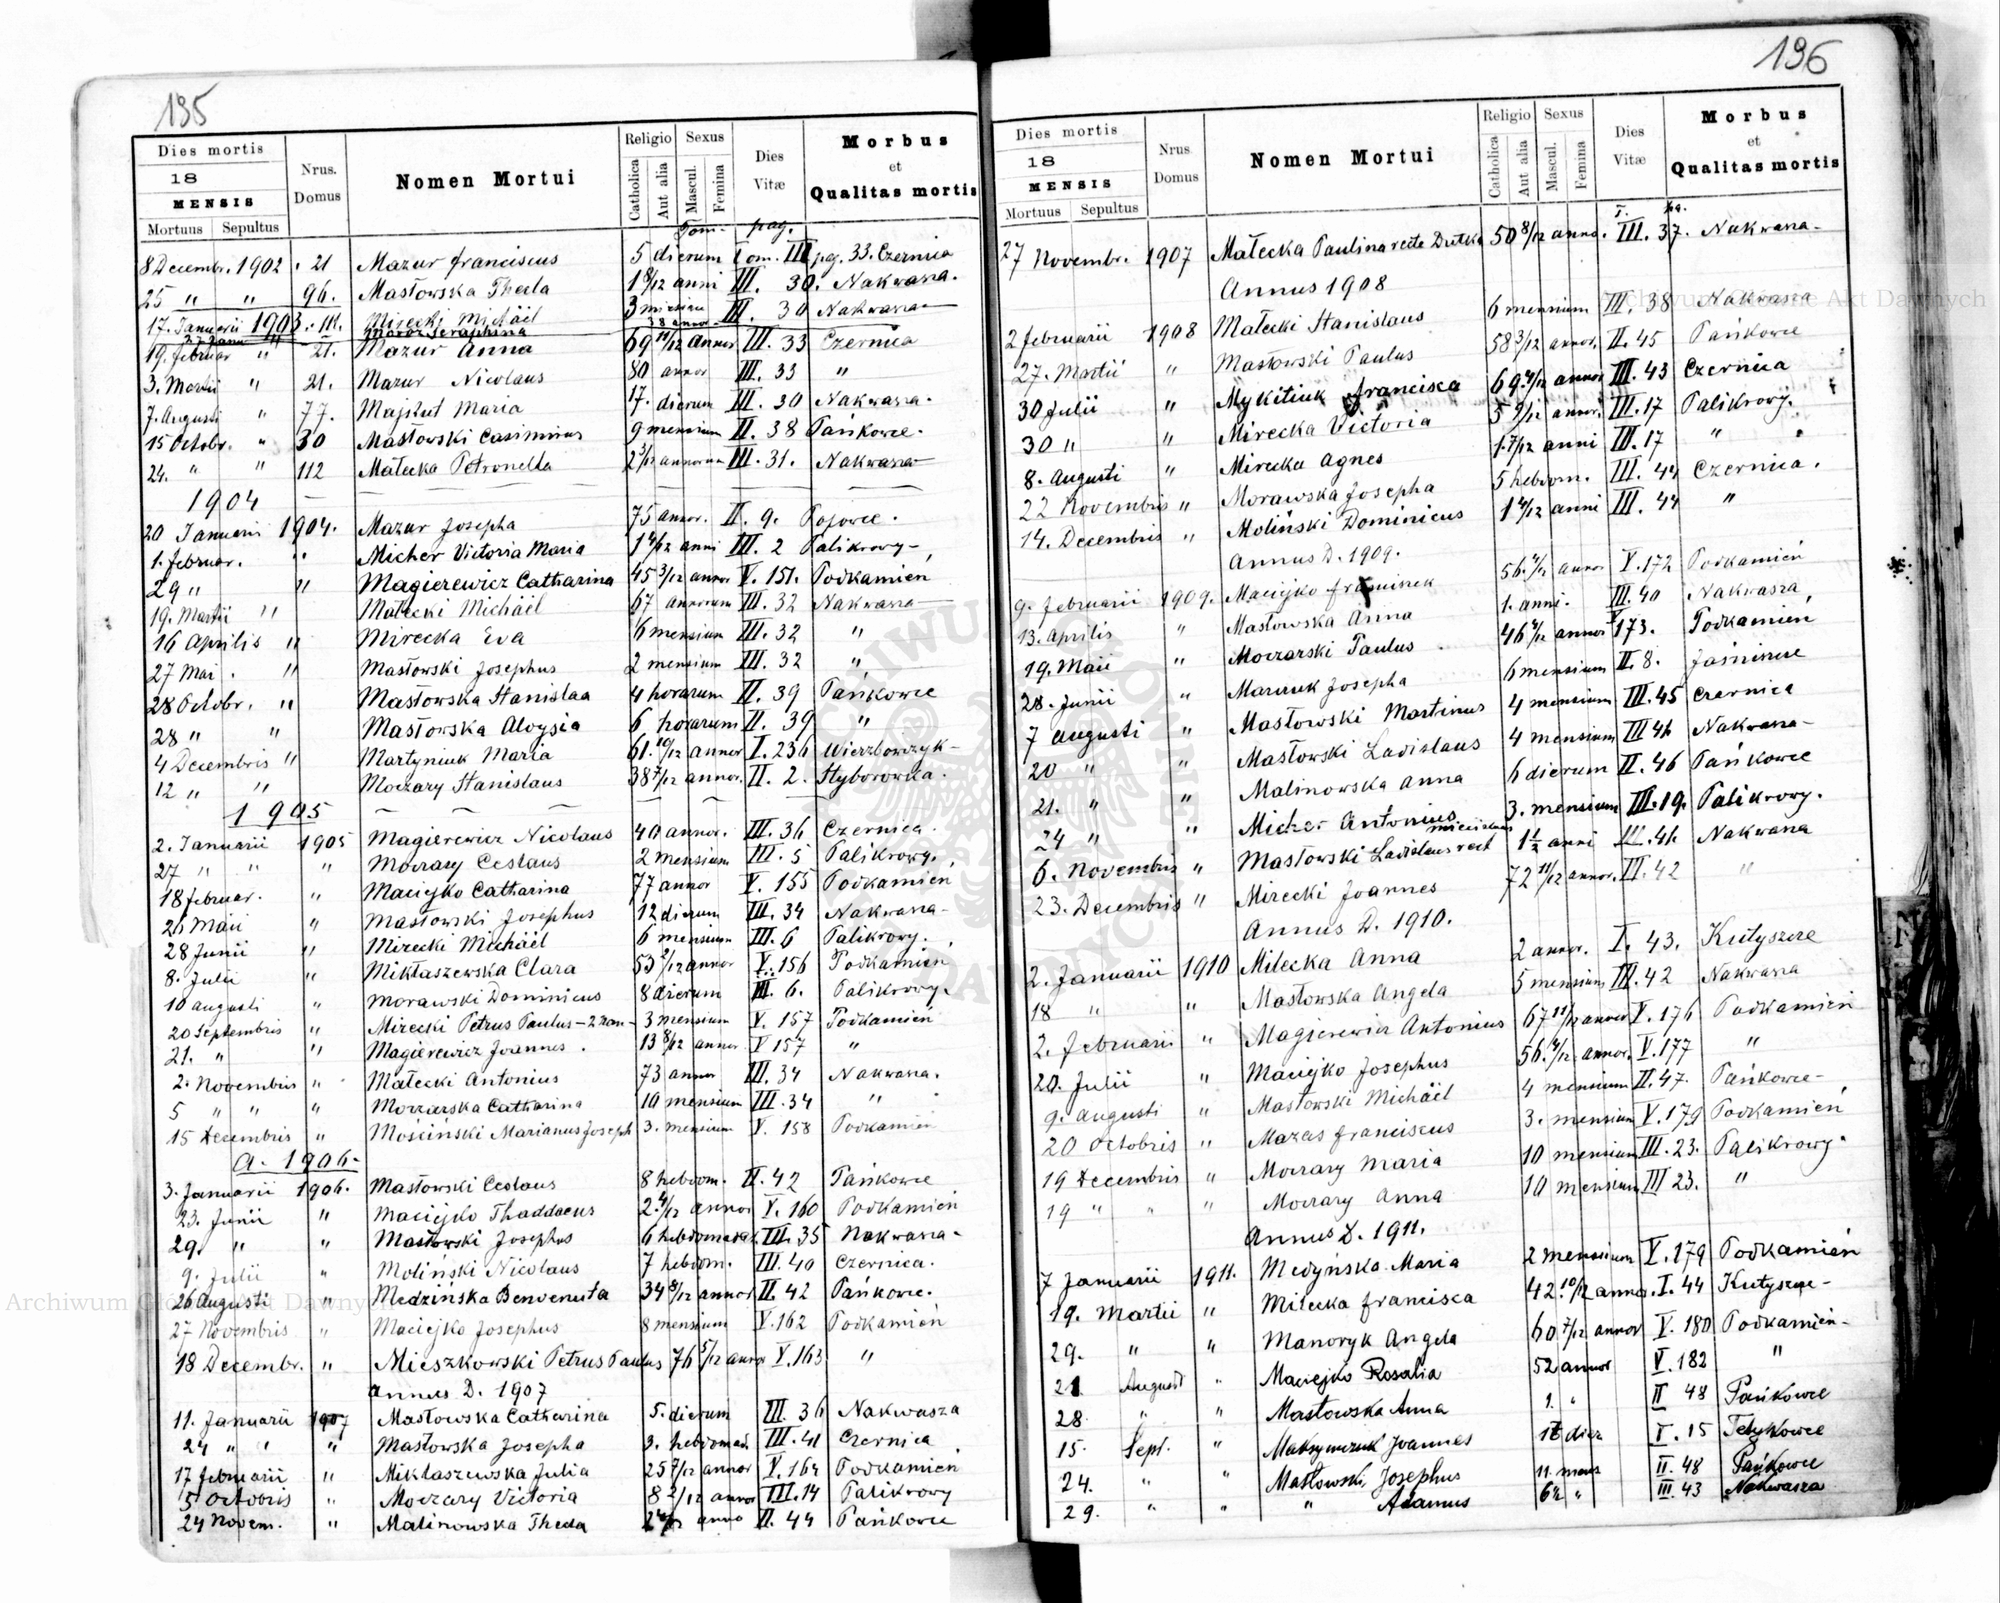 135
Dies mortis
18
MENSIS
Mortuus Sepultus
Nrus. Domus
Nomen Mortui
Religio
Catholica
Aut alia
Sexus
Mascul.
Femina
Dies Vitæ
Morbus et Qualitas mortis
Tom. pag.
8 Decembr. 1902 . 21 Mazur franciscus 5 dierum Tom. III pag. 33. Czernica
25 " " 96. Masłowska Thecla 1 8/12 anni III. 30. Nakwasza.
17. Januarii 1903. Mirecki Michäel 3 III. 30 Nakwasza
Seraphina
19. februar " 21. Mazur Anna 69 11/12 annor III. 33 Czernica
3. Martii " 21. Mazur Nicolaus 80 annor III. 33 "
7. Augusti " 77. Majkut Maria 17. dierum III. 30 Nakwasza.
15 Octobr. " 30 Masłowski Casimirus 9 mensium II. 38 Pańkowce.
24. " " 112 Małecka Petronella 2 3/12 annorum III. 31. Nakwasza
1904
20 Januarii 1904. Mazur Josepha 75 annor. II. 9. Popowce.
1. februar. " Micher Victoria Maria 1 4/12 anni III. 2 Palikrowy
29 " " Magierewicz Catharina 45 3/12 annor. V. 151. Podkamień
19. Martii " Małecki Michäel 67 annorum III. 32 Nakwasza
16 Aprilis " Mirecka Eva 6 mensium III. 32 "
27 Mai. " Masłowski Josephus 2 mensium III. 32 "
28 Octobr. " Masłowska Stanislaa 4 horarum II. 39 Pańkowce
28 " " Masłowska Aloysia 6 horarum II. 39 "
4 Decembris " Martyniuk Maria 61. 10/12 annor I. 236 Wierzbowczyk
12 " " Moczary Stanislaus 38 7/12 annor. II. 2. Styborówka.
1905
2. Januarii 1905 Magierewicz Nicolaus 40 annor. III. 36 Czernica.
27 " " " Moczary Ceslaus 2 mensium III. 5 Palikrowy.
18 februar. " Maciejko Catharina 77 annor V. 155 Podkamień
26 Maii " Masłowski Josephus 12 dierum III. 34 Nakwasza
28 Junii " Mirecki Michäel 6 mensium III. 6 Palikrowy.
8. Julii " Mikłaszewska Clara 53 2/12 annor V. 156 Podkamień
10 augusti " Morawski Dominicus 8 dierum III. 6. Palikrowy.
20 Septembris " Mirecki Petrus Paulus - 2 nom - 3 mensium V. 157 Podkamień
21. " " Magierewicz Joannes. 13 8/12 annor V 157 "
2. Novembris " Małecki Antonius 73 annor III. 34 Nakwasza.
5 " " " Moczarska Catharina 10 mensium III. 34 "
15 Decembris " Mościński Marianus Joseph 3. mensium V. 158 Podkamień
a. 1906.
3. Januarii 1906. Masłowski Ceslaus 8 hebdom. II. 42 Pańkowce
23. Junii " Maciejko Thaddaeus 2 4/12 annor V. 160 Podkamień
29. " " Masłowski Josephus 6 hebdomad. III. 35 Nakwasza
9. Julii " Moliński Nicolaus 7 hebdom. III. 40 Czernica.
26 Augusti " Medzińska Benvenuta 34 8/12 annor II. 42 Pańkowce.
27 Novembris " Maciejko Josephus 8 mensium V. 162 Podkamień
18 Decembr. " Mieszkowski Petrus Paulus 76 5/12 annor V. 163 "
Annus D. 1907
11. Januarii 1907 Masłowska Catharina 5. dierum III. 36 Nakwasza
24 " " " Masłowska Josepha 3. hebdomad. III. 41 Czernica
17 februarii " Mikłaszewska Julia 25 7/12 annor V. 164 Podkamień
5 Octobris " Moczary Victoria 8 2/12 annor III. 14 Palikrowy
24 Novem. " Malinowska Thecla annor II. 44 Pańkowce
136
Dies mortis
18
MENSIS
Mortuus Sepultus
Nrus. Domus
Nomen Mortui
Religio
Catholica
Aut alia
Sexus
Mascul.
Femina
Dies Vitæ
Morbus et Qualitas mortis
27 Novembr. 1907 Małecka Paulina recte Dutka 50 8/12 anno. III. 37. Nakwasza
Annus 1908
2 februarii 1908 Małecki Stanislaus 6 mensium III. 38 Nakwasza
27. Martii " Masłowski Paulus 58 3/12 annor. II. 45 Pańkowce
30 Julii " Mykitiuk francisca 69. 4/12 annor III. 43 Czernica
30 " " Mirecka Victoria 5 9/12 annor. III. 17 Palikrowy.
8. Augusti " Mirecka Agnes 1. 7/12 anni III. 17 "
22 Novembris " Morawska Josepha 5 hebdom. III. 44 Czernica.
14. Decembris " Moliński Dominicus 1 4/12 anni III. 44 "
Annus D. 1909.
9. februarii 1909. Maciejko franciszek 56. annor V. 172 Podkamień
13. Aprilis " Masłowska Anna 1. anni. III. 40 Nakwasza
19. Maii " Moczarski Paulus 46 annor V 173. Podkamień
28. Junii " Marczuk Josepha 6 mensium II. 8. Jaśniszcze
7 augusti " Masłowski Martinus 4 mensium III. 45 Czernica
20 " " Masłowski Ladislaus 4 mensium III 41 Nakwasza
21. " " Malinowska Anna 6 dierum II. 46 Pańkowce
24 " " Micher Antonius 3. mensium III. 19. Palikrowy.
6. Novembris " Masłowski Ladislaus rect Miecislaus 1 1/2 anni III. 41. Nakwasza
23. Decembris " Mirecki Joannes 72 11/12 annor. III. 42 "
Annus D. 1910.
2. Januarii 1910 Milecka Anna 2 annor. I. 43. Kutyszcze
18 " " Masłowska Angela 5 mensium III. 42 Nakwasza
2. februarii " Magierewicz Antonius 67 11/12 annor V. 176 Podkamień
20. Julii " Maciejko Josephus 56. 4/12 annor. V. 177 "
9. augusti " Masłowski Michäel 4 mensium II. 47. Pańkowce
20 Octobris " Mazas franciscus 3. mensium V. 179 Podkamień
19 Decembris " Moczary Maria 10 mensium III. 23. Palikrowy.
19 " " " Moczary Anna 10 mensium III 23. "
Annus D. 1911.
7 Januarii 1911. Medyńska Maria 2 mensium V. 179 Podkamień
19. Martii " Milecka francisca 42. 10/12 annor. I. 44 Kutyszcze
29. " " Manoryk Angela 60 7/12 annor V. 180 Podkamień
21 August " Maciejko Rosalia 52 annor V. 182 "
28. " " Masłowska Anna 1. " II 48 Pańkowce
15. Sept. " Maksymczuk Joannes dier I. 15 Tetylkowce
24. " " Masłowski Josephus 11 mens II. 48 Pańkowce
29. " " " Adamus " III. 43 Nakwasza
Archiwum Główne Akt Dawnych
Archiwum Główne Akt Dawnych
ARCHIWUM GŁÓWNE AKT DAWNYCH